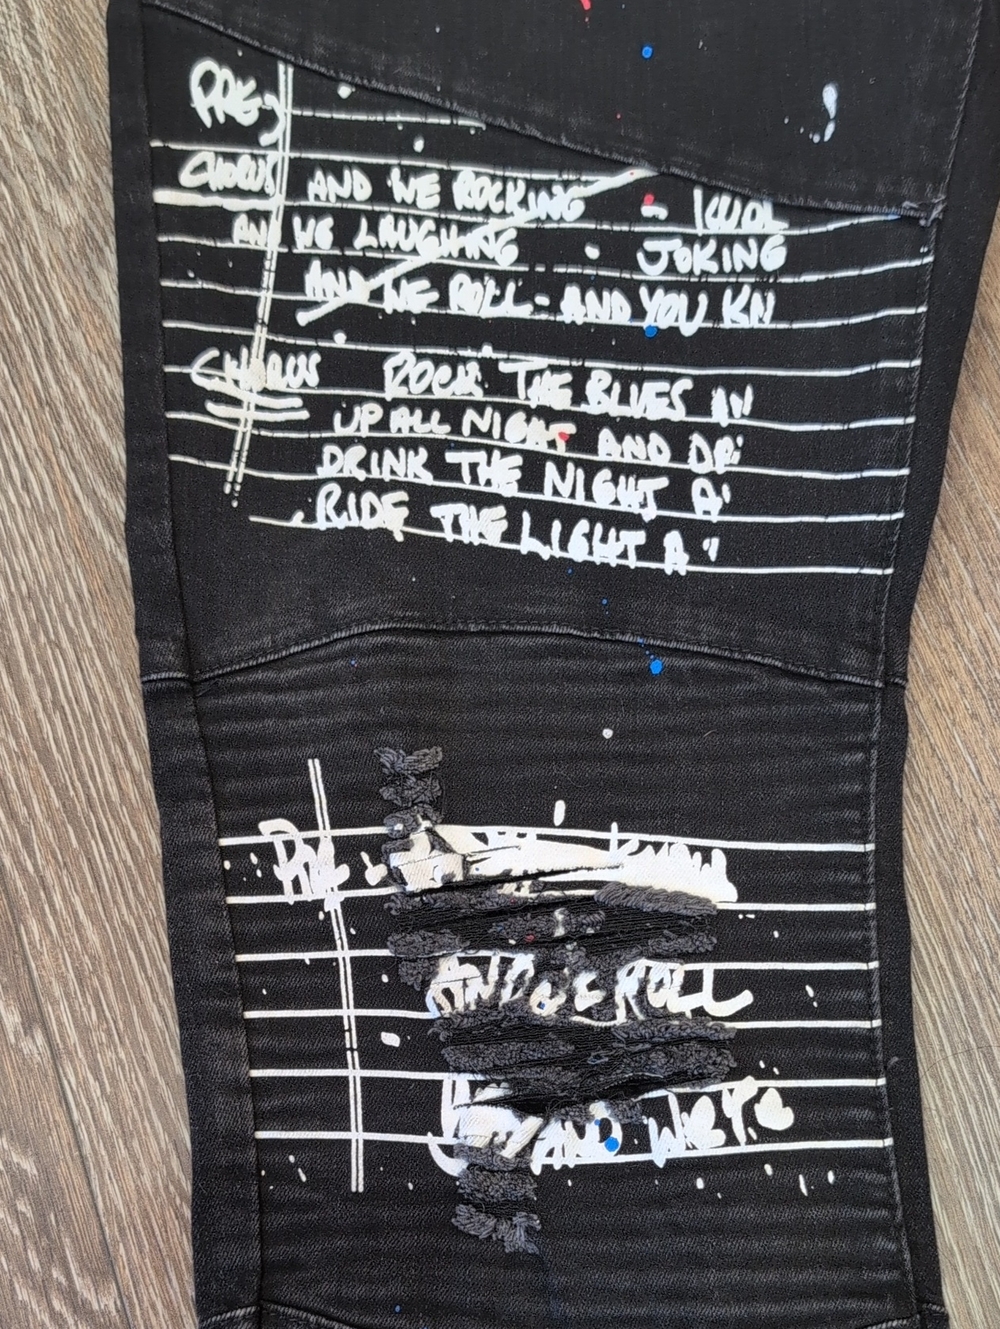 PRE-
CHORUS AND WE ROCKING - KOOL
AND WE LAUGHING - JOKING
AND WE ROLL - AND YOU KN
CHORUS ROCK THE BLUES AW
UP ALL NIGHT AND DR
DRINK THE NIGHT A
RIDE THE LIGHT A
PRE KNOW
AND WE ROLL
AND